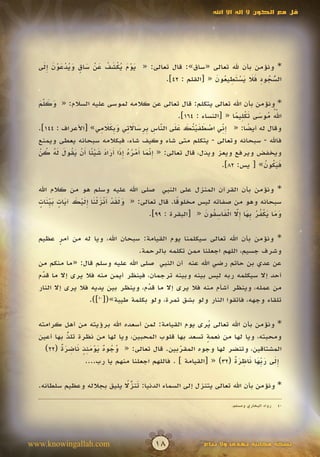 قل مع الكون لا إله إلا الله
* ونؤمن بأن لله تعالى «ساق»: قال تعالى: « يَوْمَ يُكْشَفُ عَنْ سَاقٍ وَيُدْعَوْنَ إِلَى
السُّجُودِ فَلَا يَسْتَطِيعُونَ » [القلم : ٤٢].
* ونؤمن بأن الله تعالى يتكلم: قال تعالى عن كلامه لموسى عليه السلام: « وَكَلَّمَ
اللَّهُ مُوسَى تَكْلِيمًا » [النساء : ١٦٤].
وقال له أيضًا: « إِنِّي اصْطَفَيْتُكَ عَلَى النَّاسِ بِرِسَالَاتِي وَبِكَلَامِي» [الأعراف : ١٤٤].
فالله - سبحانه وتعالى - يتكلم متى شاء وكيف شاء، فبكلامه سبحانه يعطي ويمنع
ويخفض ويرفع ويعز ويذل، قال تعالى: « إِنَّمَا أَمْرُهُ إِذَا أَرَادَ شَيْئًا أَنْ يَقُولَ لَهُ كُنْ
فَيَكُونُ» [ يس: ٨٢].
* ونؤمن بأن القرآن المنزل على النبي صلى الله عليه وسلم هو من كلام الله
سبحانه وهو من صفاته ليس مخلوقًا. قال تعالى: « وَلَقَدْ أَنْزَلْنَا إِلَيْكَ آيَاتٍ بَيِّنَاتٍ
وَمَا يَكْفُرُ بِهَا إِلَّا الْفَاسِقُونَ » [البقرة : ٩٩].
* ونؤمن بأن الله تعالى سيكلمنا يوم القيامة: سبحان الله، ويا له من أمر عظيم
وشرف جسيم، اللهم اجعلنا ممن تكلمه بالرحمة.
عن عدي بن حاتم رضي الله عنه أن النبي صلى الله عليه وسلم قال: «ما منكم من
أحد إلا سيكلمه ربه ليس بينه وبينه ترجمان، فينظر أيمن منه فلا يرى إلا ما قدَّم
من عمله، وينظر أشأم منه فلا يرى إلا ما قدَّم، وينظر بين يديه فلا يرى إلا النار
تلقاء وجهه، فاتقوا النار ولو بشق تمرة، ولو بكلمة طيبة»(٤٠).
* ونؤمن بأن الله تعالى يُرى يوم القيامة: لمن أسعده الله برؤيته من أهل كرامته
ومحبته، ويا لها من نعمةٍ تسعد بها قلوب المحبين، ويا لها من نظرة تلذُّ بها أعين
المشتاقين، وتنضر لها وجود المقرَّبين، قال تعالى: « وُجُوهٌ يَوْمَئِذٍ نَاضِرَةٌ (٢٢)
إِلَى رَبِّهَا نَاظِرَةٌ (٢٣) » [القيامة ] . فاللهم اجعلنا منهم يا رب....
* ونؤمن بأن الله تعالى يتنزل إلى السماء الدنيا: نُزُلًا يليق بجلاله وعظيم سلطانه.
٤٠ رواه البخاري ومسلم.
www.knowingallah.com
١٨
نسخة مجانية تهدى ولا تباع